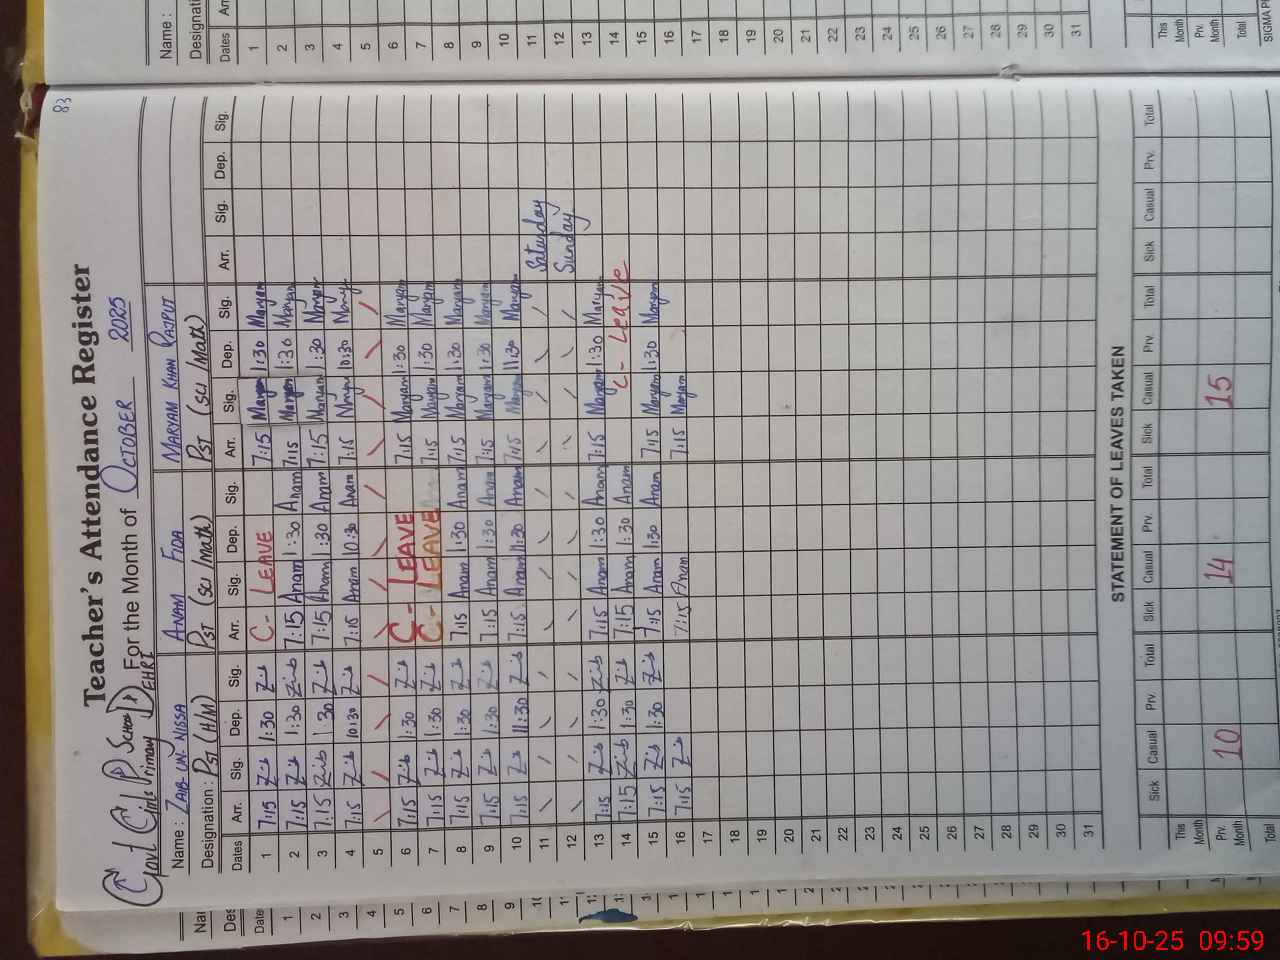 83
Teacher's Attendance Register
Govt Girls Primary School DEHRI For the Month of October 2025
Name: ZAIB-UN-NISSA ANAM FIDA MARYAM KHAN RAJPUT
Designation: PST (H/M) PST (SCI/Math) PST (SCI/Math)
Dates Arr. Sig. Dep. Sig. Arr. Sig. Dep. Sig. Arr. Sig. Dep. Sig. Arr. Sig. Dep. Sig.
1 7:15 Zib 1:30 Zib C- LEAVE 7:15 Maryam 1:30 Maryam
2 7:15 Zib 1:30 Zib 7:15 Anam 1:30 Anam 7:15 Maryam 1:30 Maryam
3 7:15 Zib 1:30 Zib 7:15 Anam 1:30 Anam 7:15 Maryam 1:30 Maryam
4 7:15 Zib 10:30 Zib 7:15 Anam 10:30 Anam 7:15 Maryam 10:30 Maryam
5
6 7:15 Zib 1:30 Zib C- LEAVE 7:15 Maryam 1:30 Maryam
7 7:15 Zib 1:30 Zib C- LEAVE 7:15 Maryam 1:30 Maryam
8 7:15 Zib 1:30 Zib 7:15 Anam 1:30 Anam 7:15 Maryam 1:30 Maryam
9 7:15 Zib 1:30 Zib 7:15 Anam 1:30 Anam 7:15 Maryam 1:30 Maryam
10 7:15 Zib 11:30 Zib 7:15 Anam 11:30 Anam 7:15 Maryam 11:30 Maryam
11 Saturday
12 Sunday
13 7:15 Zib 1:30 Zib 7:15 Anam 1:30 Anam 7:15 Maryam 1:30 Maryam
14 7:15 Zib 1:30 Zib 7:15 Anam 1:30 Anam C- Leave
15 7:15 Zib 1:30 Zib 7:15 Anam 1:30 Anam 7:15 Maryam 1:30 Maryam
16 7:15 Zib 7:15 Anam 7:15 Maryam
17
18
19
20
21
22
23
24
25
26
27
28
29
30
31
STATEMENT OF LEAVES TAKEN
Sick Casual Prv. Total Sick Casual Prv. Total Sick Casual Prv. Total Sick Casual Prv. Total
This Month
Prv. Month 10 14 15
Total
Name:
Dates
1
2
3
4
5
6
7
8
9
10
11
12
13
14
15
16
17
18
19
20
21
22
23
24
25
26
27
28
29
30
31
This Month
Prv. Month
Total
16-10-25 09:59